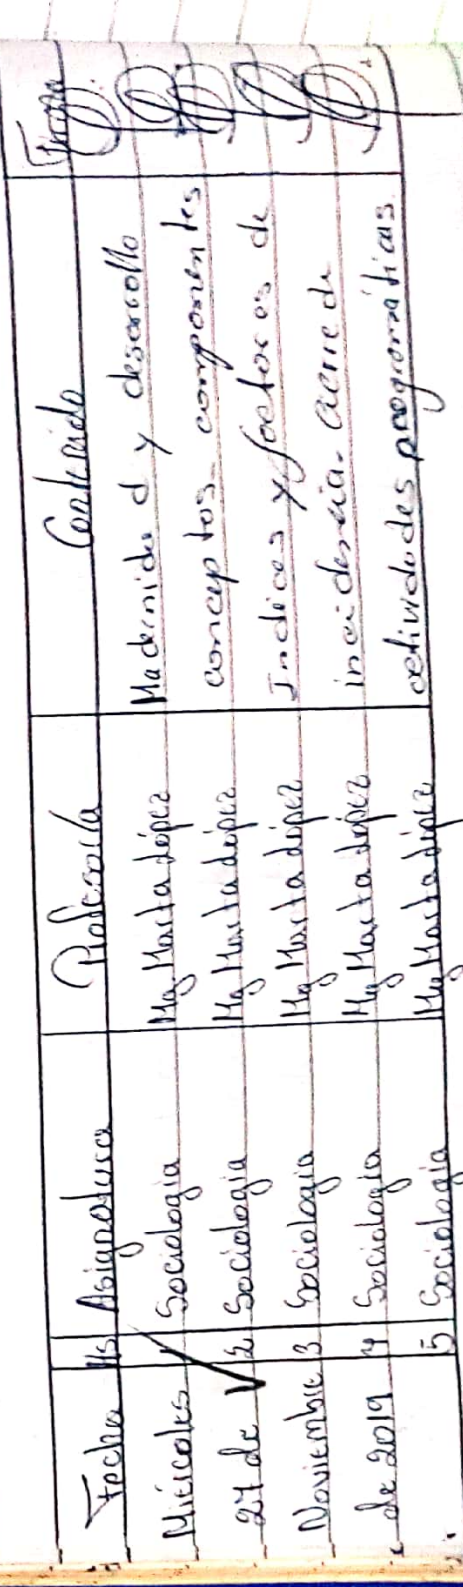 Fecha Hs Asignatura Profesor/a Contenido Firma
Miércoles 1 Sociologia Mg Marta López Modernidad y desarrollo
27 de 2 Sociologia Mg Marta López conceptos - componentes
Noviembre 3 Sociologia Mg Marta López Indices y factores de
de 2019 4 Sociologia Mg Marta López incidencia - cierre de
5 Sociologia Mg Marta López actividades programáticas.